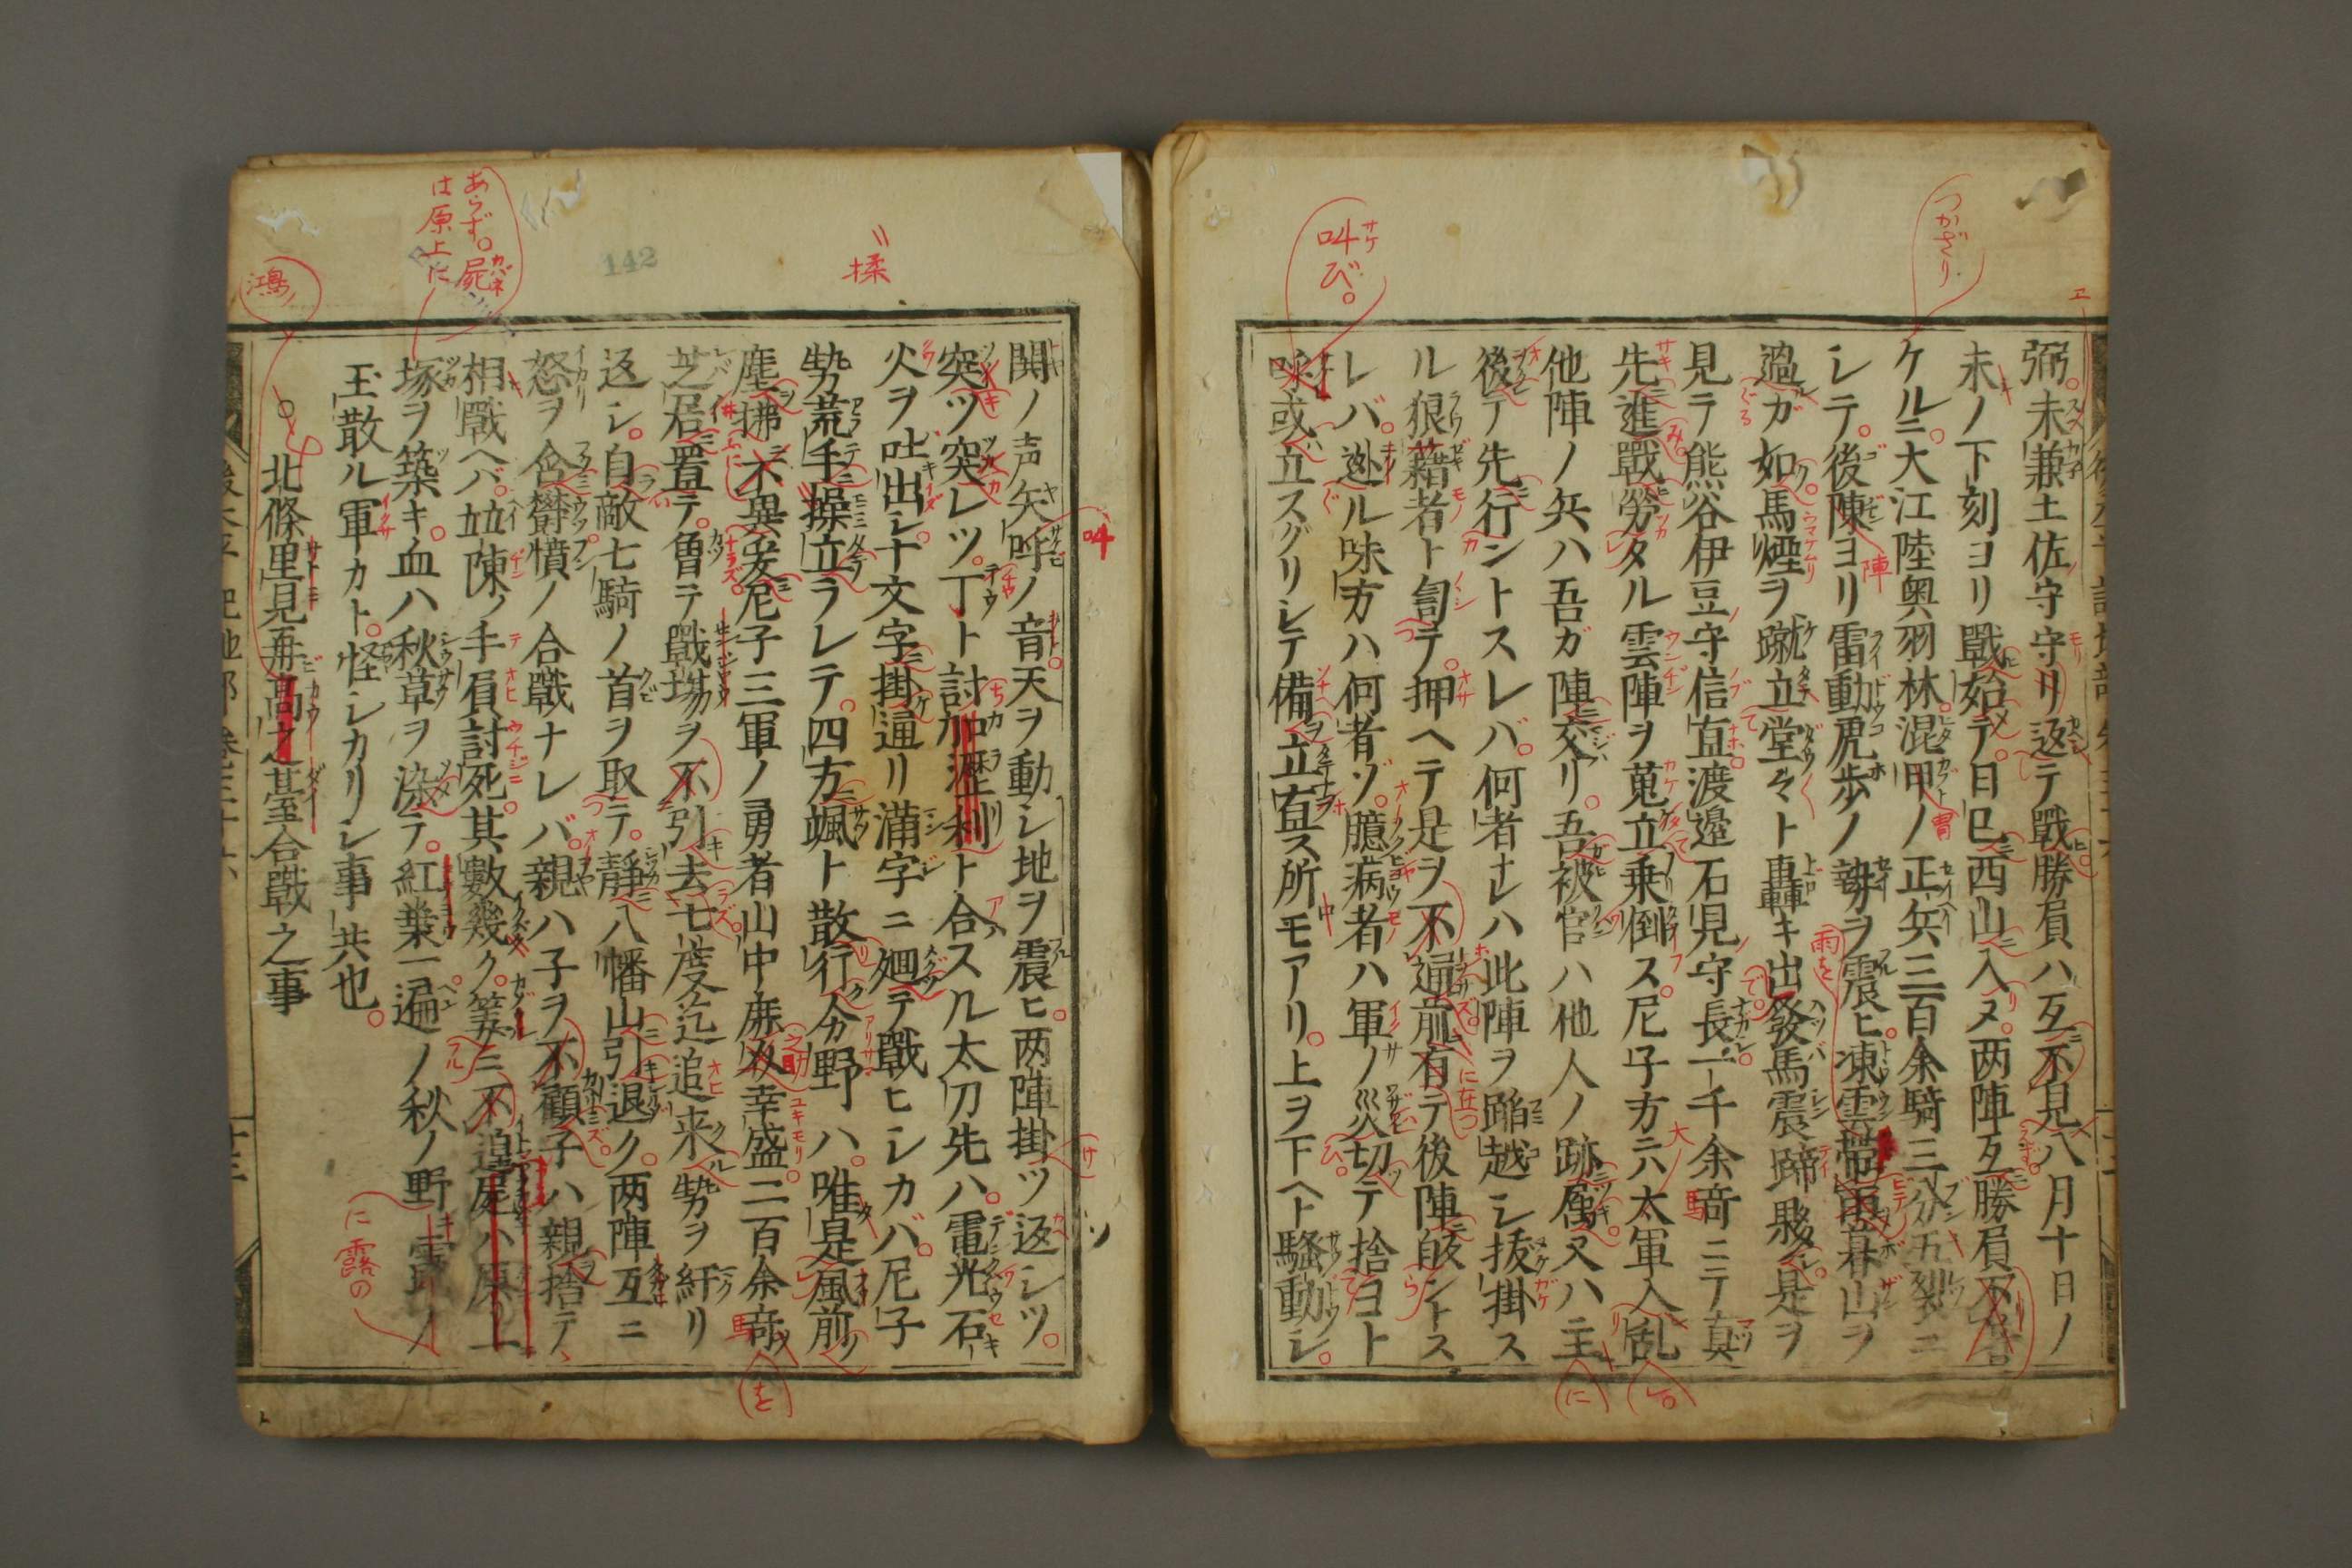 弥未兼土佐守守リ返テ戰勝負ハ互不見八月十日ノ
未ノ下刻ヨリ戰始テ日已西山入ヌ両陣互勝負不
ケルニ大江陸奥羽林混甲ノ正兵三百余騎三分五裂ニ
シテ後陳ヨリ雷動虎歩ノ勢ヲ震ヒ凍雲帶雨暮山ヲ
過ガ如馬煙ヲ蹴立堂々ト轟キ出發馬震蹄是ヲ
見テ熊谷伊豆守信直渡邊石見守長一千余竒ニテ真
先進戰労タル雲陣ヲ蒐立乗倒ス尼子方ニハ太軍入乱
他陣ノ兵ハ吾ガ陣交リ吾被官ハ他人ノ跡属又ハ主
後テ先行ントスレバ何者ナレハ此陣ヲ踰越シ抜掛ス
ル狼藉者ト訇テ押ヘテ是ヲ不通前有テ後陣皈ントス
レバ迯ル味方ハ何者ゾ臆病者ハ軍ノ災切テ捨ヨト
呼或立スグリシテ備立直ス所モアリ上ヲ下ヘト騒動シ
つかざり
叫び。
鬨ノ声矢呼ノ音天ヲ動シ地ヲ震ヒ両陣掛ツ返シツ
突ツ突レツ丁ト討加歴利ト合スル太刀先ハ電光石
火ヲ吐出シ十文字掛通リ滿字ニ廻テ戰ヒシカバ尼子
勢荒手操立ラレテ四方颯ト散行分野ハ唯是風前
塵拂不異爰尼子三軍ノ勇者山中鹿幸盛二百余竒
芝居置テ曽テ戰塲ヲ不引去七度迄追来勢ヲ紆リ
返シ自敵七騎ノ首ヲ取テ靜八幡山引退ク両陣互ニ
怒ヲ含欝憤ノ合戰ナレバ親ハ子ヲ不顧子ハ親捨テ
相戰ヘバ竝陳ノ手負討死其數幾ク筭ニ不遑屍ハ原上
塚ヲ築キ血ハ秋草ヲ染テ紅葉一遍ノ秋ノ野
玉散ル軍カト怪シカリシ事共也
北條里見再髙之臺合戰之事
揉
142
あらず。屍
は原上に
鴻ノ
に露の